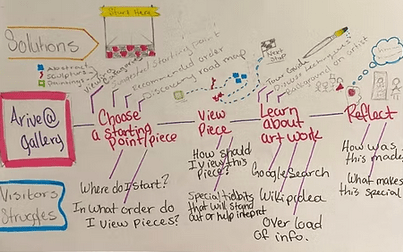 Start Here
Solutions
Abstract
Sculpture
Paintings
Suggested starting point
Recommended order
Discovery road map
Next
Stop!
Tour Guide
Background on artist
Arive@
gallery
Choose
a starting
point/piece
View
Piece
Learn
about
art work
Reflect
Visitors
Struggles
Where do I start?
In what order do
I view pieces?
How should
I view this
piece?
Special tidbits
that will stand
out or help interprit
Google Search
Wikipidea
Over load
of info.
How was
this made
What makes
this special